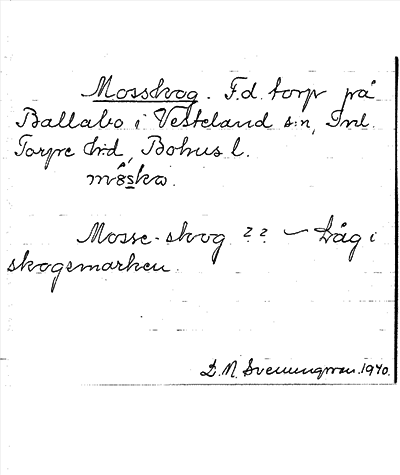 Mosskog. F.d. torp på
Ballabo i Västerland s:n, Inl.
Torpe hrd, Bohus l.
måska.
Mosse-skog ?? — Låg i
skogsmarken.
D. N. Svenungsson. 1940.